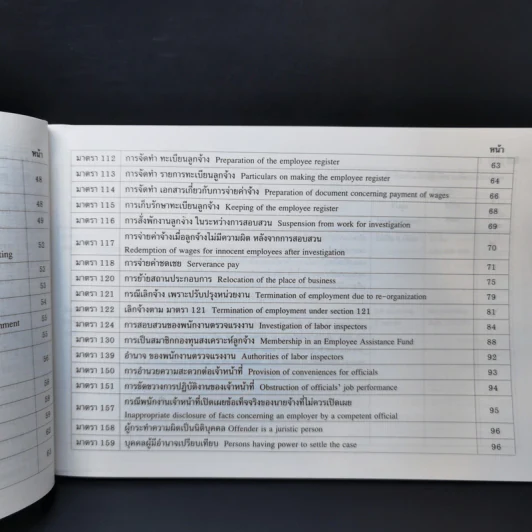 หน้า
48
48
49
49
52
ting
52
53
54
53
nment
55
56
58
59
59
60
61
หน้า
มาตรา 112 การจัดทำ ทะเบียนลูกจ้าง Preparation of the employee register 63
มาตรา 113 การจัดทำ รายการทะเบียนลูกจ้าง Particulars on making the employee register 64
มาตรา 114 การจัดทำ เอกสารเกี่ยวกับการจ่ายค่าจ้าง Preparation of document concerning payment of wages 66
มาตรา 115 การเก็บรักษาทะเบียนลูกจ้าง Keeping of the employee register 68
มาตรา 116 การสั่งพักงานลูกจ้าง ในระหว่างการสอบสวน Suspension from work for investigation 69
มาตรา 117 การจ่ายค่าจ้างเมื่อลูกจ้างไม่มีความผิด หลังจากการสอบสวน 70
Redemption of wages for innocent employees after investigation
มาตรา 118 การจ่ายค่าชดเชย Serverance pay 71
มาตรา 120 การย้ายสถานประกอบการ Relocation of the place of business 75
มาตรา 121 กรณีเลิกจ้าง เพราะปรับปรุงหน่วยงาน Termination of employment due to re-organization 79
มาตรา 122 เลิกจ้างตาม มาตรา 121 Termination of employment under section 121 81
มาตรา 124 การสอบสวนของพนักงานตรวจแรงงาน Investigation of labor inspectors 84
มาตรา 130 การเป็นสมาชิกกองทุนสงเคราะห์ลูกจ้าง Membership in an Employee Assistance Fund 88
มาตรา 139 อำนาจ ของพนักงานตรวจแรงงาน Authorities of labor inspectors 92
มาตรา 150 การอำนวยความสะดวกต่อเจ้าหน้าที่ Provision of conveniences for officials 93
มาตรา 151 การขัดขวางการปฏิบัติงานของเจ้าหน้าที่ Obstruction of officials' job performance 94
มาตรา 157 กรณีพนักงานเจ้าหน้าที่เปิดเผยข้อเท็จจริงของนายจ้างที่ไม่ควรเปิดเผย 95
Inappropriate disclosure of facts concerning an employer by a competent official
มาตรา 158 ผู้กระทำความผิดเป็นนิติบุคคล Offender is a juristic person 96
มาตรา 159 บุคคลผู้มีอำนาจเปรียบเทียบ Persons having power to settle the case 96